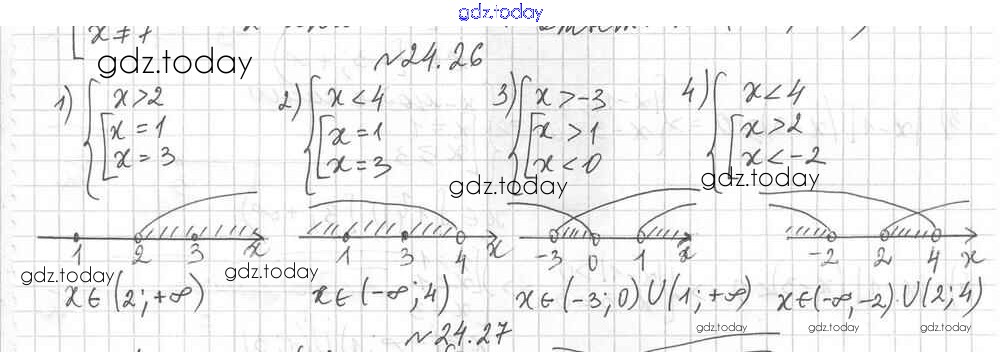 gdz.today
x ≠ 1
gdz.today
№24.26
1) { x > 2
[ x = 1
x = 3
2) { x < 4
[ x = 1
x = 3
3) { x > -3
[ x > 1
x < 0
4) { x < 4
[ x > 2
x < -2
gdz.today
gdz.today
1 2 3 x
1 3 4 x
-3 0 1 x
-2 2 4 x
gdz.today
gdz.today
x ∈ (2; +∞)
x ∈ (-∞; 4)
x ∈ (-3; 0) ∪ (1; +∞)
x ∈ (-∞, -2) ∪ (2; 4)
№24.27
gdz.today
gdz.today
gdz.today